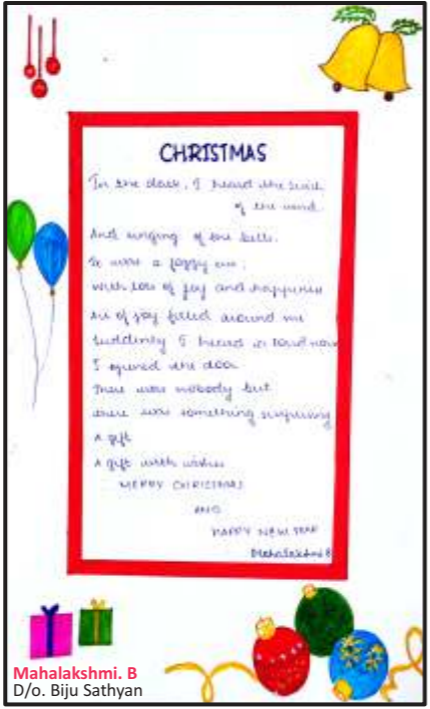 CHRISTMAS
In the dark, I heard the
of the wind.
And singing of the bells.
It was a foggy eve,
With lots of joy and happiness
of joy filled around me
Suddenly I heard a loud
I opened the door
There was nobody but
there was something surprising
A gift
A gift with wishes
MERRY CHRISTMAS
AND
HAPPY NEW YEAR
Mahalakshmi B
Mahalakshmi. B
D/o. Biju Sathyan